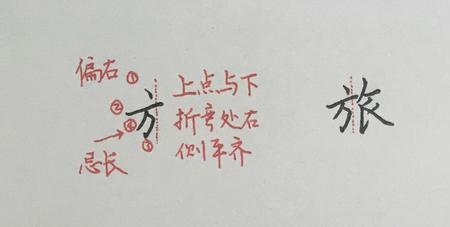 偏右 ①
②
④
③
忌长
方
上点与下
折弯处右
侧平齐
旅